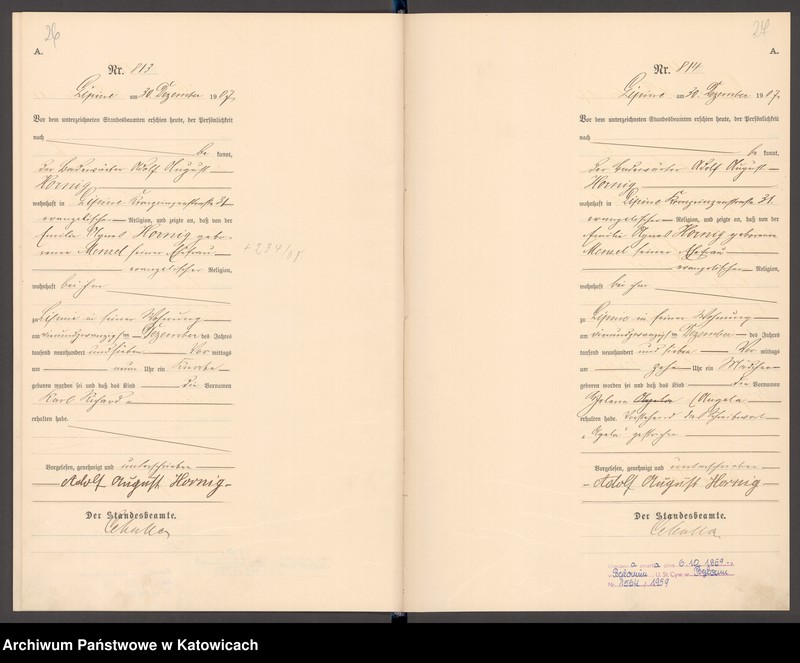 26
A.
Nr. 813
Lipine am 30. Dezember 1907.
Vor dem unterzeichneten Standesbeamten erschien heute, der Persönlichkeit
nach
be kannt,
der Badewärter Adolf August
Hornig
wohnhaft in Lipine Kronprinzenstraße 31
evangelischer Religion, und zeigte an, daß von der
Emilie Agnes Hornig gebo-
rene Menzel seiner Ehefrau
evangelischer Religion,
wohnhaft bei ihm
zu Lipine in seiner Wohnung
am vierundzwanzigsten Dezember des Jahres
tausend neunhundert und sieben Vor mittags
um neun Uhr ein Knabe
geboren worden sei und daß das Kind die Vornamen
Karl Richard
erhalten habe.
Vorgelesen, genehmigt und unterschrieben
Adolf August Hornig
Der Standesbeamte.
27
A.
Nr. 814
Lipine am 30. Dezember 1907.
Vor dem unterzeichneten Standesbeamten erschien heute, der Persönlichkeit
nach
be kannt,
der Badewärter Adolf August
Hornig
wohnhaft in Lipine Kronprinzenstraße 31.
evangelischer Religion, und zeigte an, daß von der
Emilie Agnes Hornig geborene
Menzel seiner Ehefrau
evangelischer Religion,
wohnhaft bei ihm
zu Lipine in seiner Wohnung
am vierundzwanzigsten Dezember des Jahres
tausend neunhundert und sieben Vor mittags
um zehn Uhr ein Mädchen
geboren worden sei und daß das Kind die Vornamen
Helene Angela
erhalten habe. Vorstehend das
gestrichen
Vorgelesen, genehmigt und unterschrieben
Adolf August Hornig
Der Standesbeamte.
6.10.1959
U. St. Cyw.
Nr. 1959
Archiwum Państwowe w Katowicach